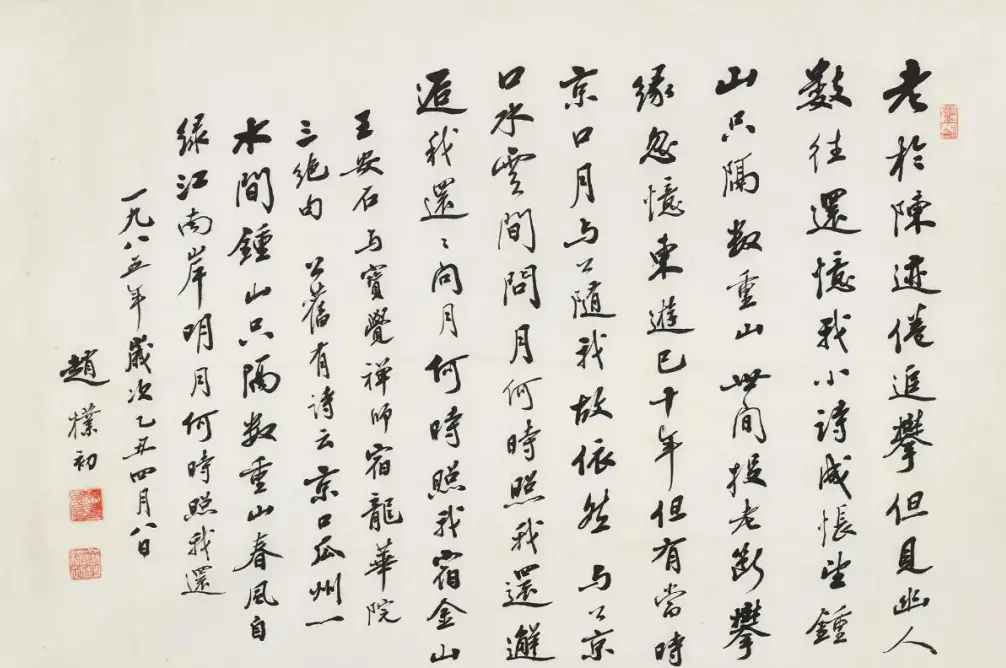 老於陳迹倦追攀但見幽人
数往還憶我小詩成悵望鍾
山只隔数重山世間投老斷攀
緣忽憶東遊已十年但有當時
京口月与公隨我故依然与公京
口水雲間問月何時照我還邂
逅我還〻問月何時照我宿金山
王安石与寶覺禪師宿龍華院
三絶句公舊有詩云京口瓜州一
水間鍾山只隔数重山春風自
緑江南岸明月何時照我還
一九八五年歲次乙丑四月八日
趙樸初